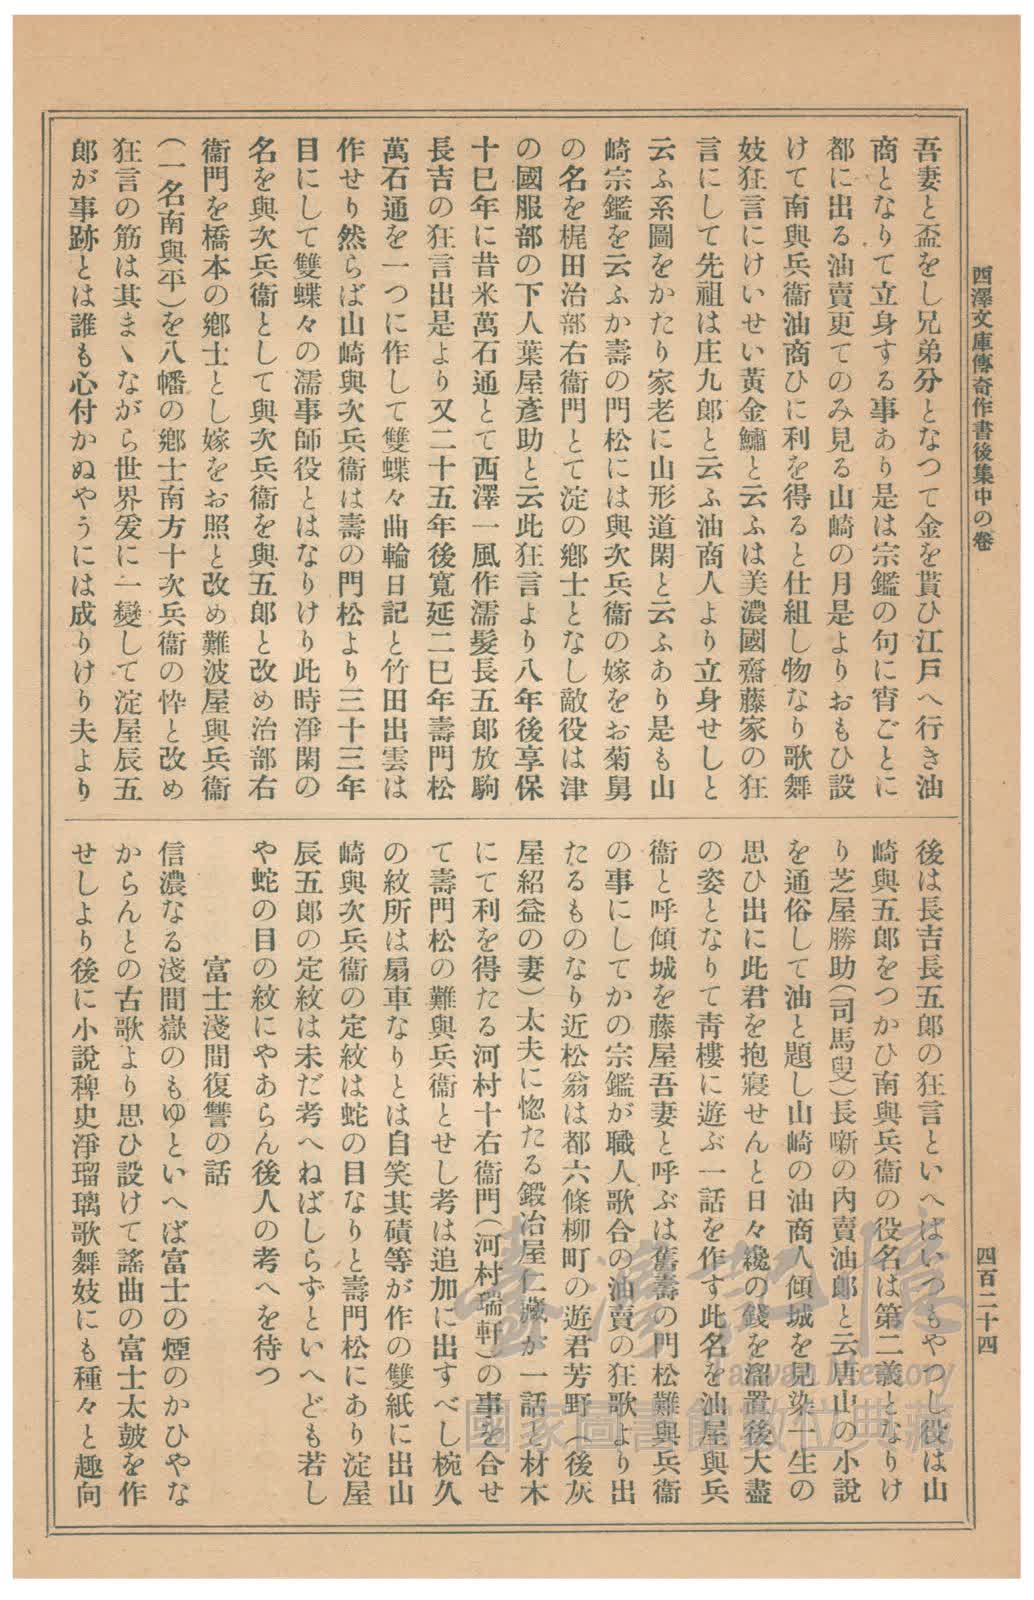 西澤文庫傳奇作書後集中の卷
四百二十四
吾妻と盃をし兄弟分となつて金を貰ひ江戸へ行き油
商となりて立身する事あり是は宗鑑の句に宵ごとに
都に出る油賣更てのみ見る山崎の月是よりおもひ設
けて南與兵衞油商ひに利を得ると仕組し物なり歌舞
妓狂言にけいせい黃金鱐と云ふは美濃國齋藤家の狂
言にして先祖は庄九郎と云ふ油商人より立身せしと
云ふ系圖をかたり家老に山形道閑と云ふあり是も山
崎宗鑑を云ふか壽の門松には與次兵衞の嫁をお菊舅
の名を梶田治部右衞門とて淀の鄕士となし敵役は津
の國服部の下人葉屋彥助と云此狂言より八年後享保
十巳年に昔米萬石通とて西澤一風作濡髮長五郎放駒
長吉の狂言出是より又二十五年後寬延二巳年壽門松
萬石通を一つに作して雙蝶々曲輪日記と竹田出雲は
作せり然らば山崎與次兵衞は壽の門松より三十三年
目にして雙蝶々の濡事師役とはなりけり此時淨閑の
名を與次兵衞として與次兵衞を與五郎と改め治部右
衞門を橋本の鄕士とし嫁をお照と改め難波屋與兵衞
(一名南與平)を八幡の鄕士南方十次兵衞の忰と改め
狂言の筋は其まゝながら世界爰に一變して淀屋辰五
郎が事跡とは誰も心付かぬやうには成りけり夫より
後は長吉長五郎の狂言といへばいつもやつし役は山
崎與五郎をつかひ南與兵衞の役名は第二義となりけ
り芝屋勝助(司馬叟)長噺の內賣油郎と云唐山の小說
を通俗して油と題し山崎の油商人傾城を見染一生の
思ひ出に此君を抱寢せんと日々纔の錢を溜置後大盡
の姿となりて靑樓に遊ぶ一話を作す此名を油屋與兵
衞と呼傾城を藤屋吾妻と呼ぶは舊壽の門松難與兵衞
の事にしてかの宗鑑が職人歌合の油賣の狂歌より出
たるものなり近松翁は都六條柳町の遊君芳野(後灰
屋紹益の妻)太夫に惚たる鍛冶屋仁藏が一話と材木
にて利を得たる河村十右衞門(河村瑞軒)の事を合せ
て壽門松の難與兵衞とせし考は追加に出すべし椀久
の紋所は扇車なりとは自笑其磧等が作の雙紙に出山
崎與次兵衞の定紋は蛇の目なりと壽門松にあり淀屋
辰五郎の定紋は未だ考へねばしらずといへども若し
や蛇の目の紋にやあらん後人の考へを待つ
富士淺間復讐の話
信濃なる淺間嶽のもゆといへば富士の煙のかひやな
からんとの古歌より思ひ設けて謠曲の富士太鼓を作
せしより後に小說稗史淨瑠璃歌舞妓にも種々と趣向
臺灣記憶
Taiwan Memory
國家圖書館數位典藏